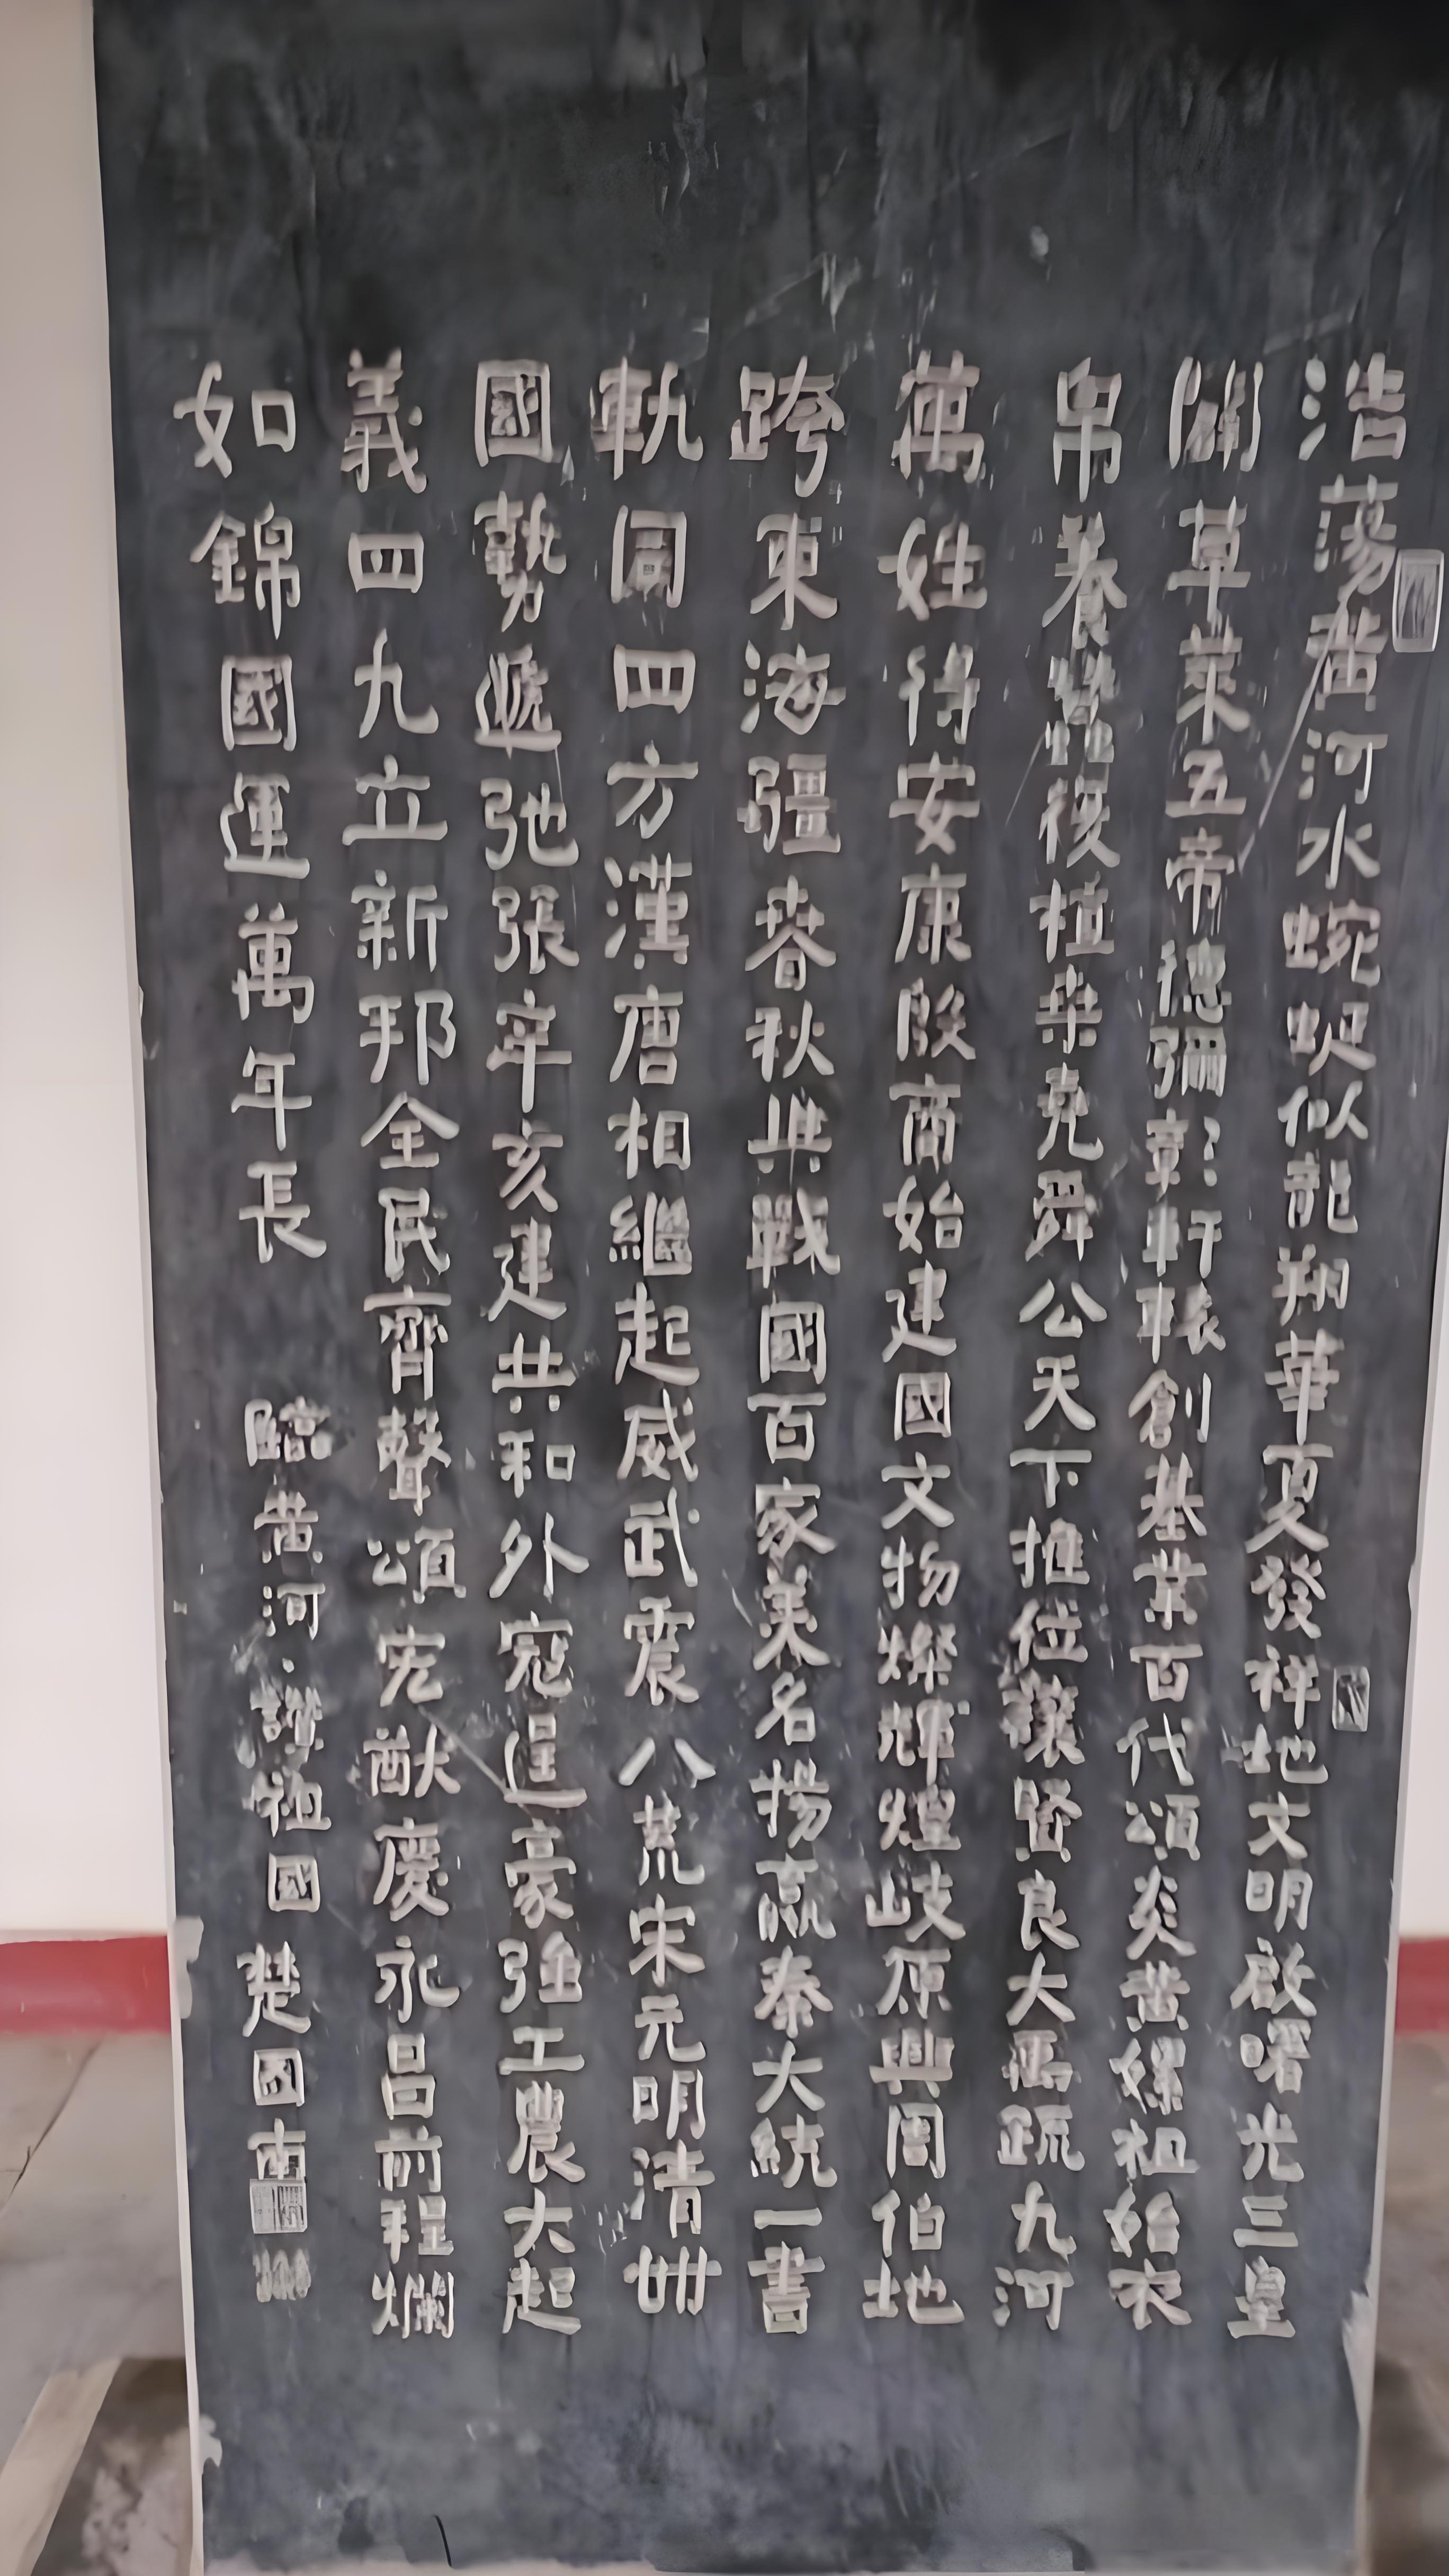 浩蕩黄河水蜿蜒似龍翔華夏發祥地文明啟曙光三皇
闢草萊五帝德彌彰軒轅創基業百代頌炎黄嫘祖始衣
帛養蠶後植桑堯舜公天下推位讓賢良大禹疏九河
萬姓得安康殷商始建國文物燦輝煌岐原興周伯地
跨東海疆春秋與戰國百家美名揚嬴秦大統一書
軌同四方漢唐相繼起威武震八荒宋元明清卌
國勢遞弛張辛亥建共和外寇逞豪強工農大起
義四九立新邦全民齊聲頌宏猷慶永昌前程爛
如錦國運萬年長
臨黄河·讚祖國 楚國南